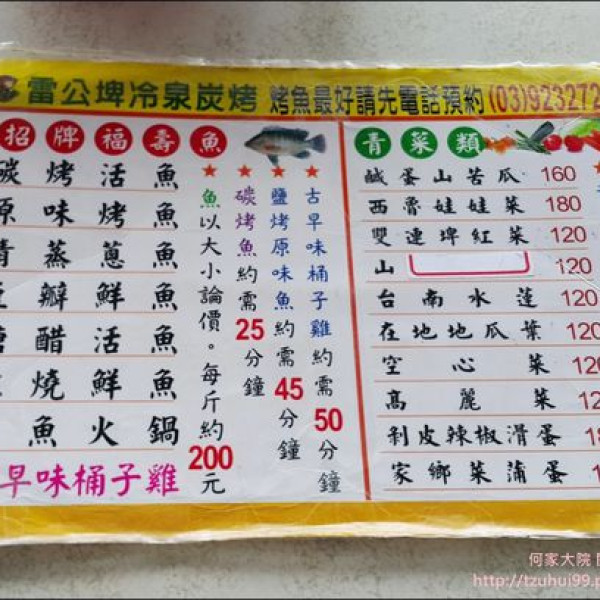 雷公埤冷泉炭烤 烤魚最好請先電話預約 (03)923272
招牌福壽魚
碳烤活魚
原味烤魚
清蒸蔥魚
豆瓣鮮魚
糖醋活魚
燒鮮魚
魚火鍋
早味桶子雞
魚以大小論價。每斤約200元
碳烤魚約需25分鐘
鹽烤原味魚約需45分鐘
古早味桶子雞約需50分鐘
青菜類
鹹蛋山苦瓜 160
西魯娃娃菜 180
雙連埤紅菜 120
山 120
台南水蓮 120
在地地瓜葉 120
空心菜 120
高麗菜 12
剝皮辣椒滑蛋 18
家鄉菜蒲蛋 1
何家大院
http://tzuhui99.p